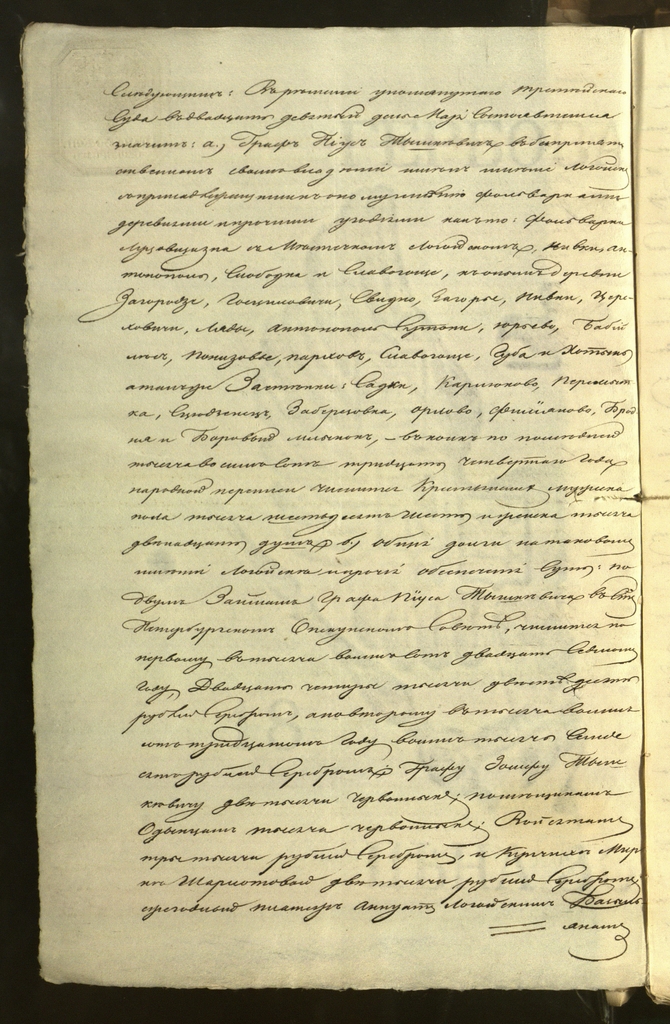 Следующимъ: Въ решении упомянутаго третейскаго
Суда въ двадцать девятый день Маія Состоявшемся
значитъ: а.) Графъ Піусъ Тышкевичъ въ безпрепят
ственномъ своемъ владеніи имеетъ имение Логойскъ
съ принадлежащими къ оному имению фольварками
деревнями и прочими угодіями какъ то: фольварки
съ Местечкомъ Логойскомъ, Нивки, Ан-
тонополь, Слободка и Славогощь, къ онымъ деревни
Загорадзе, Гостиловичи, Свидно, Загорье, Нивки, Цере-
ховичи, Ляды, Антонополь, Юрьево,
Понизовье, Славогоще, Губа и
Застенки: Садки, Карпюково,
ка, Заберезовка, Орлово,
и Боровой млынокъ, – въ коихъ по последней
тысяча восемь сотъ тридцать четвертаго года
народной переписи числится Крестьянъ мужска
пола тысяча шестьдесятъ шесть и женска тысяча
двенадцать душъ б.) общіе долги на таковомъ
имении Логойске и прочіе обезпечении суть: по
двумъ Займамъ Графа Піуса Тышкевича въ Ст.
Петербургскомъ Опекунскомъ Совете, числится по
первому въ тысяча восемь сотъ двадцать Седьмомъ
Году, Двадцать четыре тысячи двести десять
рублей Серебромъ, а по второму въ тысяча восемь
сотъ тридцатомъ Году восемь тысячъ Семьде
сятъ рублей Серебромъ; Графу Іосифу Тыш
кевичу две тысячи червонныхъ; помещикамъ
Одынцамъ тысяча червонныхъ;
три тысячи рублей Серебромъ, и
Шарлотовой две тысячи рублей Серебромъ,
ежегодный платежъ Аннуатъ Логойскимъ Базиль
янамъ